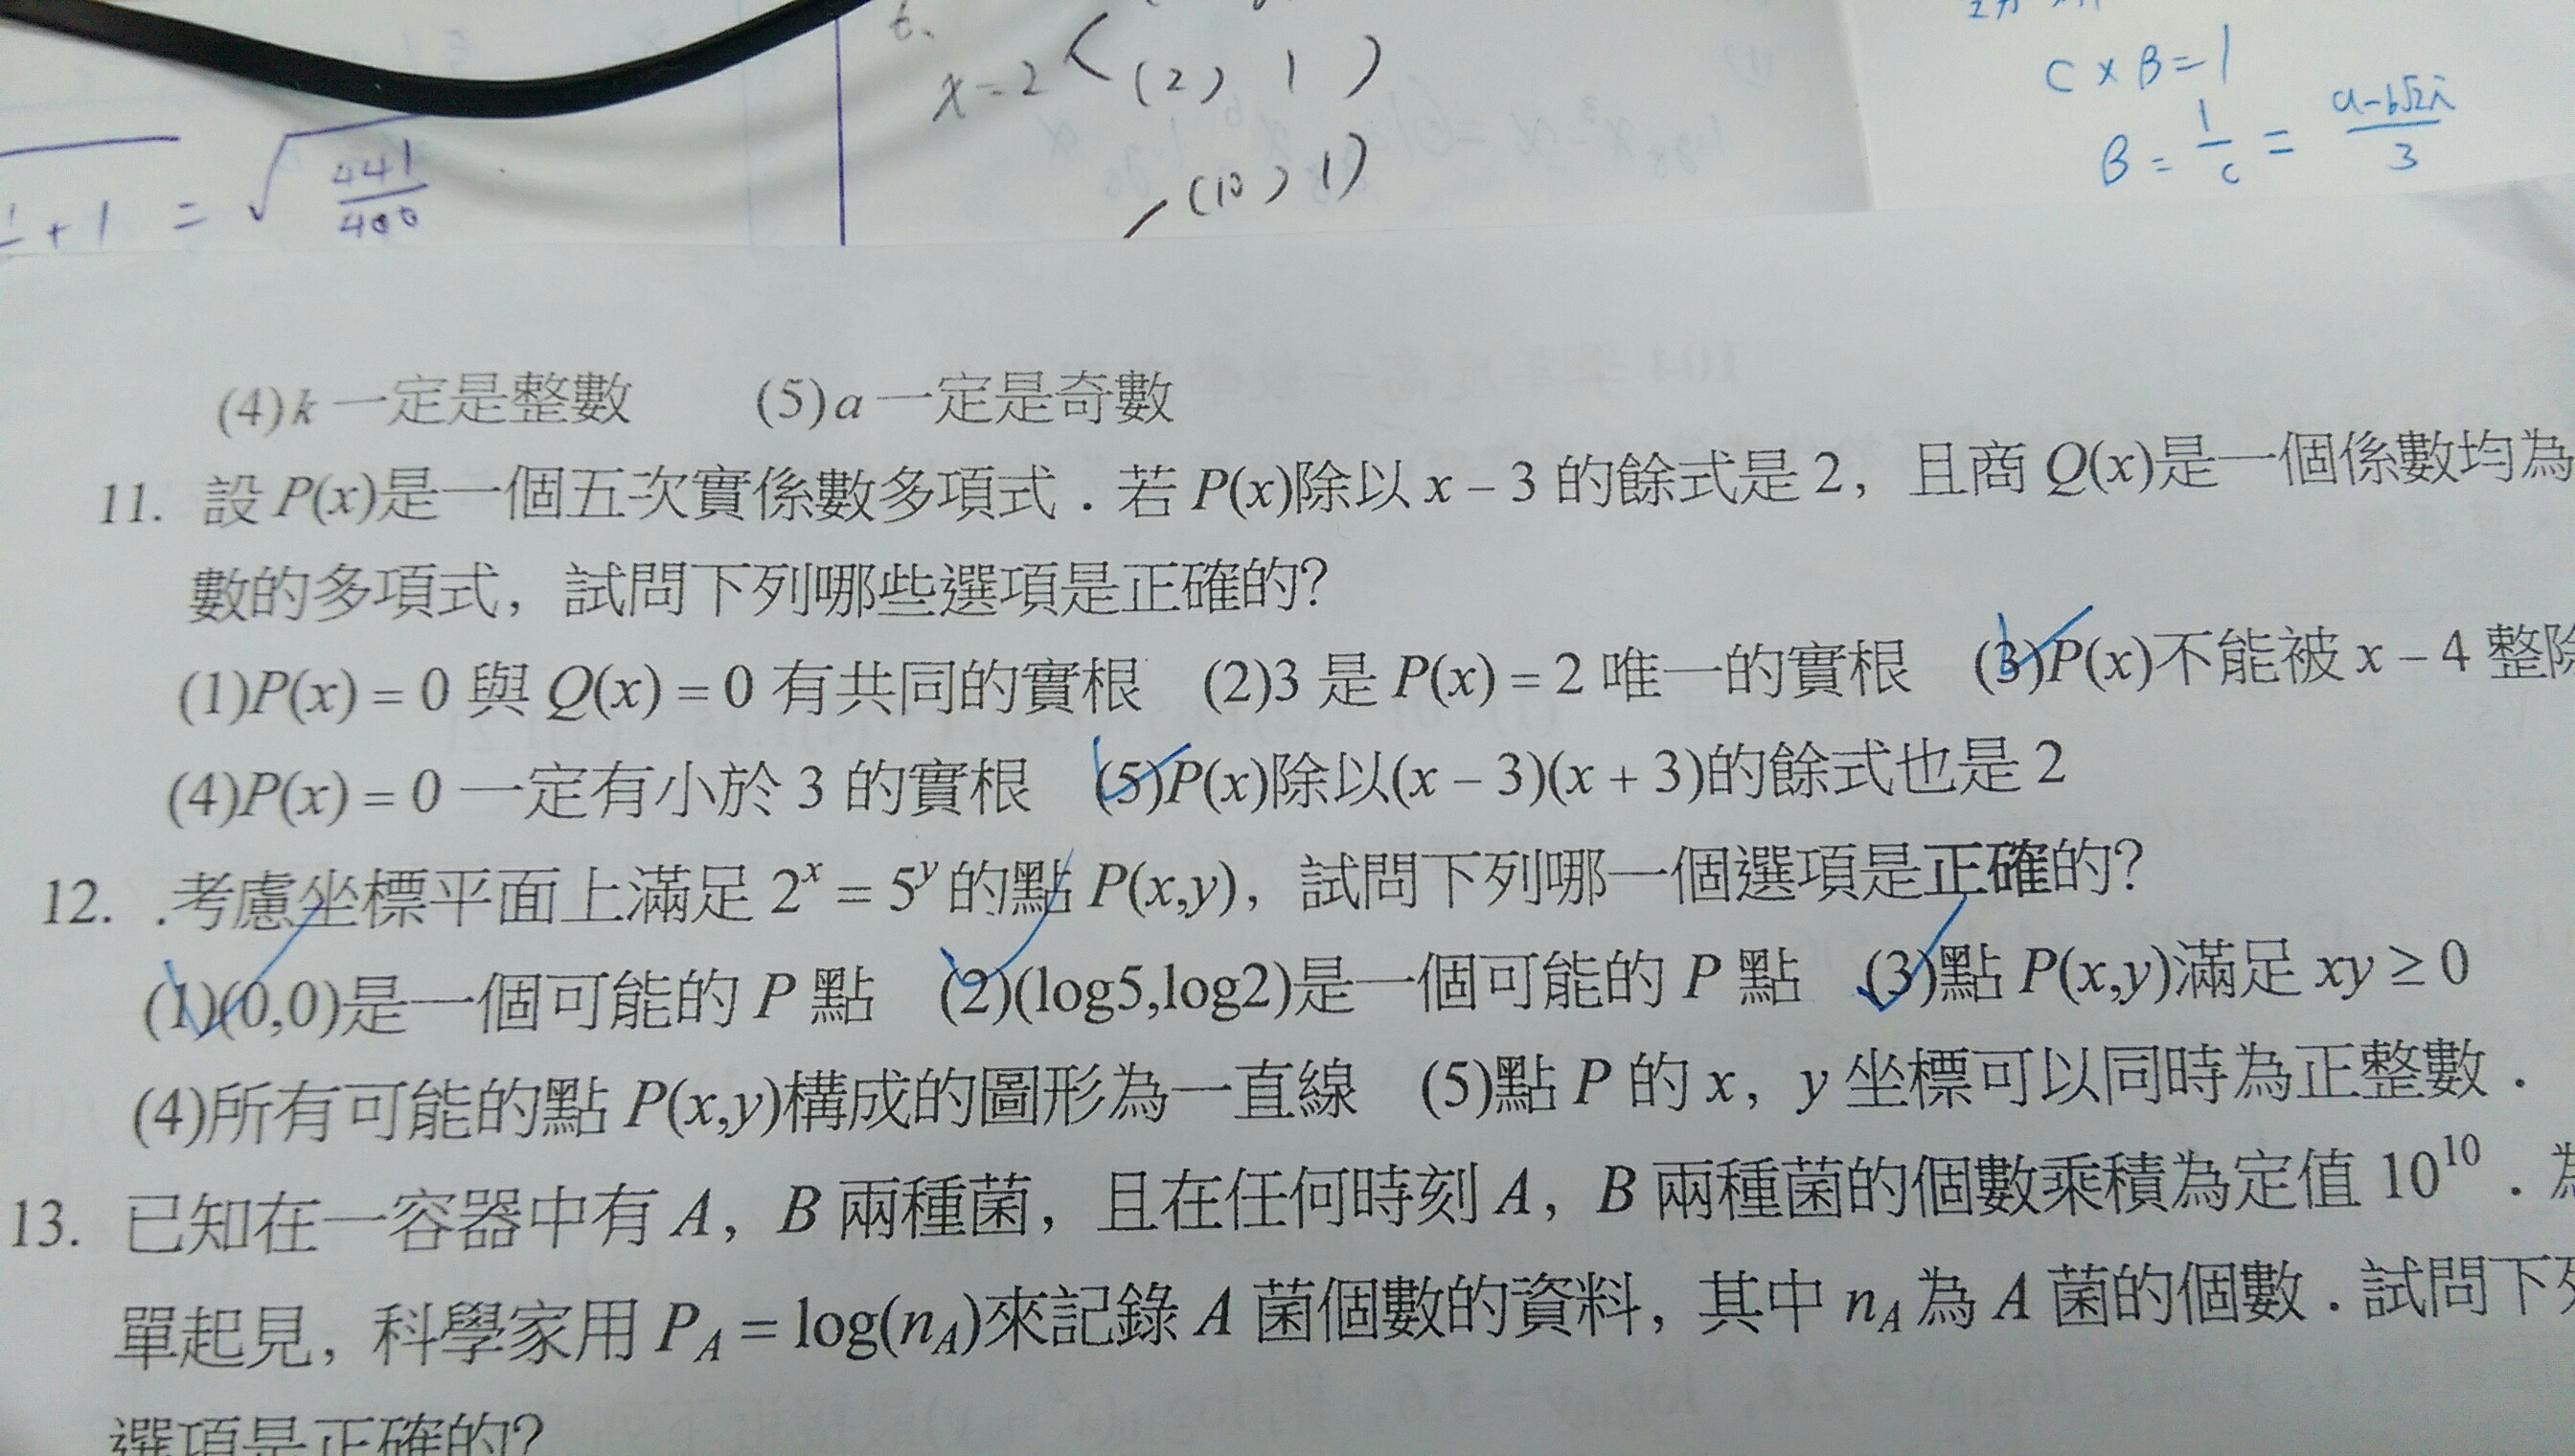 6.
x=2 < (2, 1)
(10, 1)
+1 = √441/400
C × B = 1
B = 1/c = a-b√2i/3
(4)k 一定是整數 (5)a 一定是奇數
11. 設 P(x)是一個五次實係數多項式．若 P(x)除以 x – 3 的餘式是 2，且商 Q(x)是一個係數均為
數的多項式，試問下列哪些選項是正確的？
(1)P(x) = 0 與 Q(x) = 0 有共同的實根 (2)3 是 P(x) = 2 唯一的實根 (3)P(x)不能被 x – 4 整除
(4)P(x) = 0 一定有小於 3 的實根 (5)P(x)除以(x – 3)(x + 3)的餘式也是 2
12. .考慮坐標平面上滿足 2ˣ = 5ʸ 的點 P(x,y)，試問下列哪一個選項是正確的？
(1)(0,0)是一個可能的 P 點 (2)(log5,log2)是一個可能的 P 點 (3)點 P(x,y)滿足 xy ≥ 0
(4)所有可能的點 P(x,y)構成的圖形為一直線 (5)點 P 的 x，y 坐標可以同時為正整數．
13. 已知在一容器中有 A，B 兩種菌，且在任何時刻 A，B 兩種菌的個數乘積為定值 10¹⁰．為
單起見，科學家用 P_A = log(n_A)來記錄 A 菌個數的資料，其中 n_A 為 A 菌的個數．試問下列
選項是正確的？